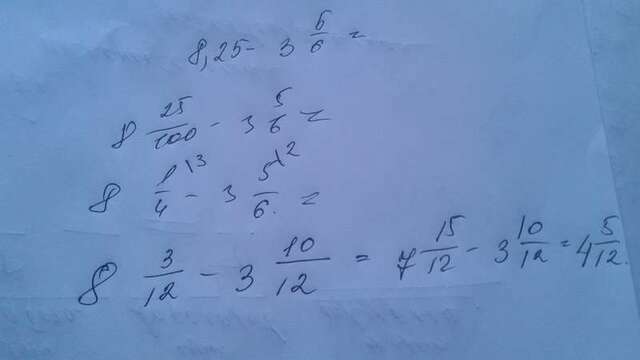 8,25 - 3 5/6 =
8 25/100 - 3 5/6 =
8 1\3/4 - 3 5\2/6. =
8 3/12 - 3 10/12 = 7 15/12 - 3 10/12 = 4 5/12.